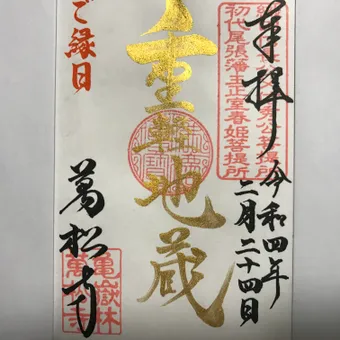 奉拝
令和四年
月二十四日
秀公菩提所
初代尾張藩主正室春姫菩提所
重軽地蔵
ご縁日
萬松寺
亀嶽林
萬松寺